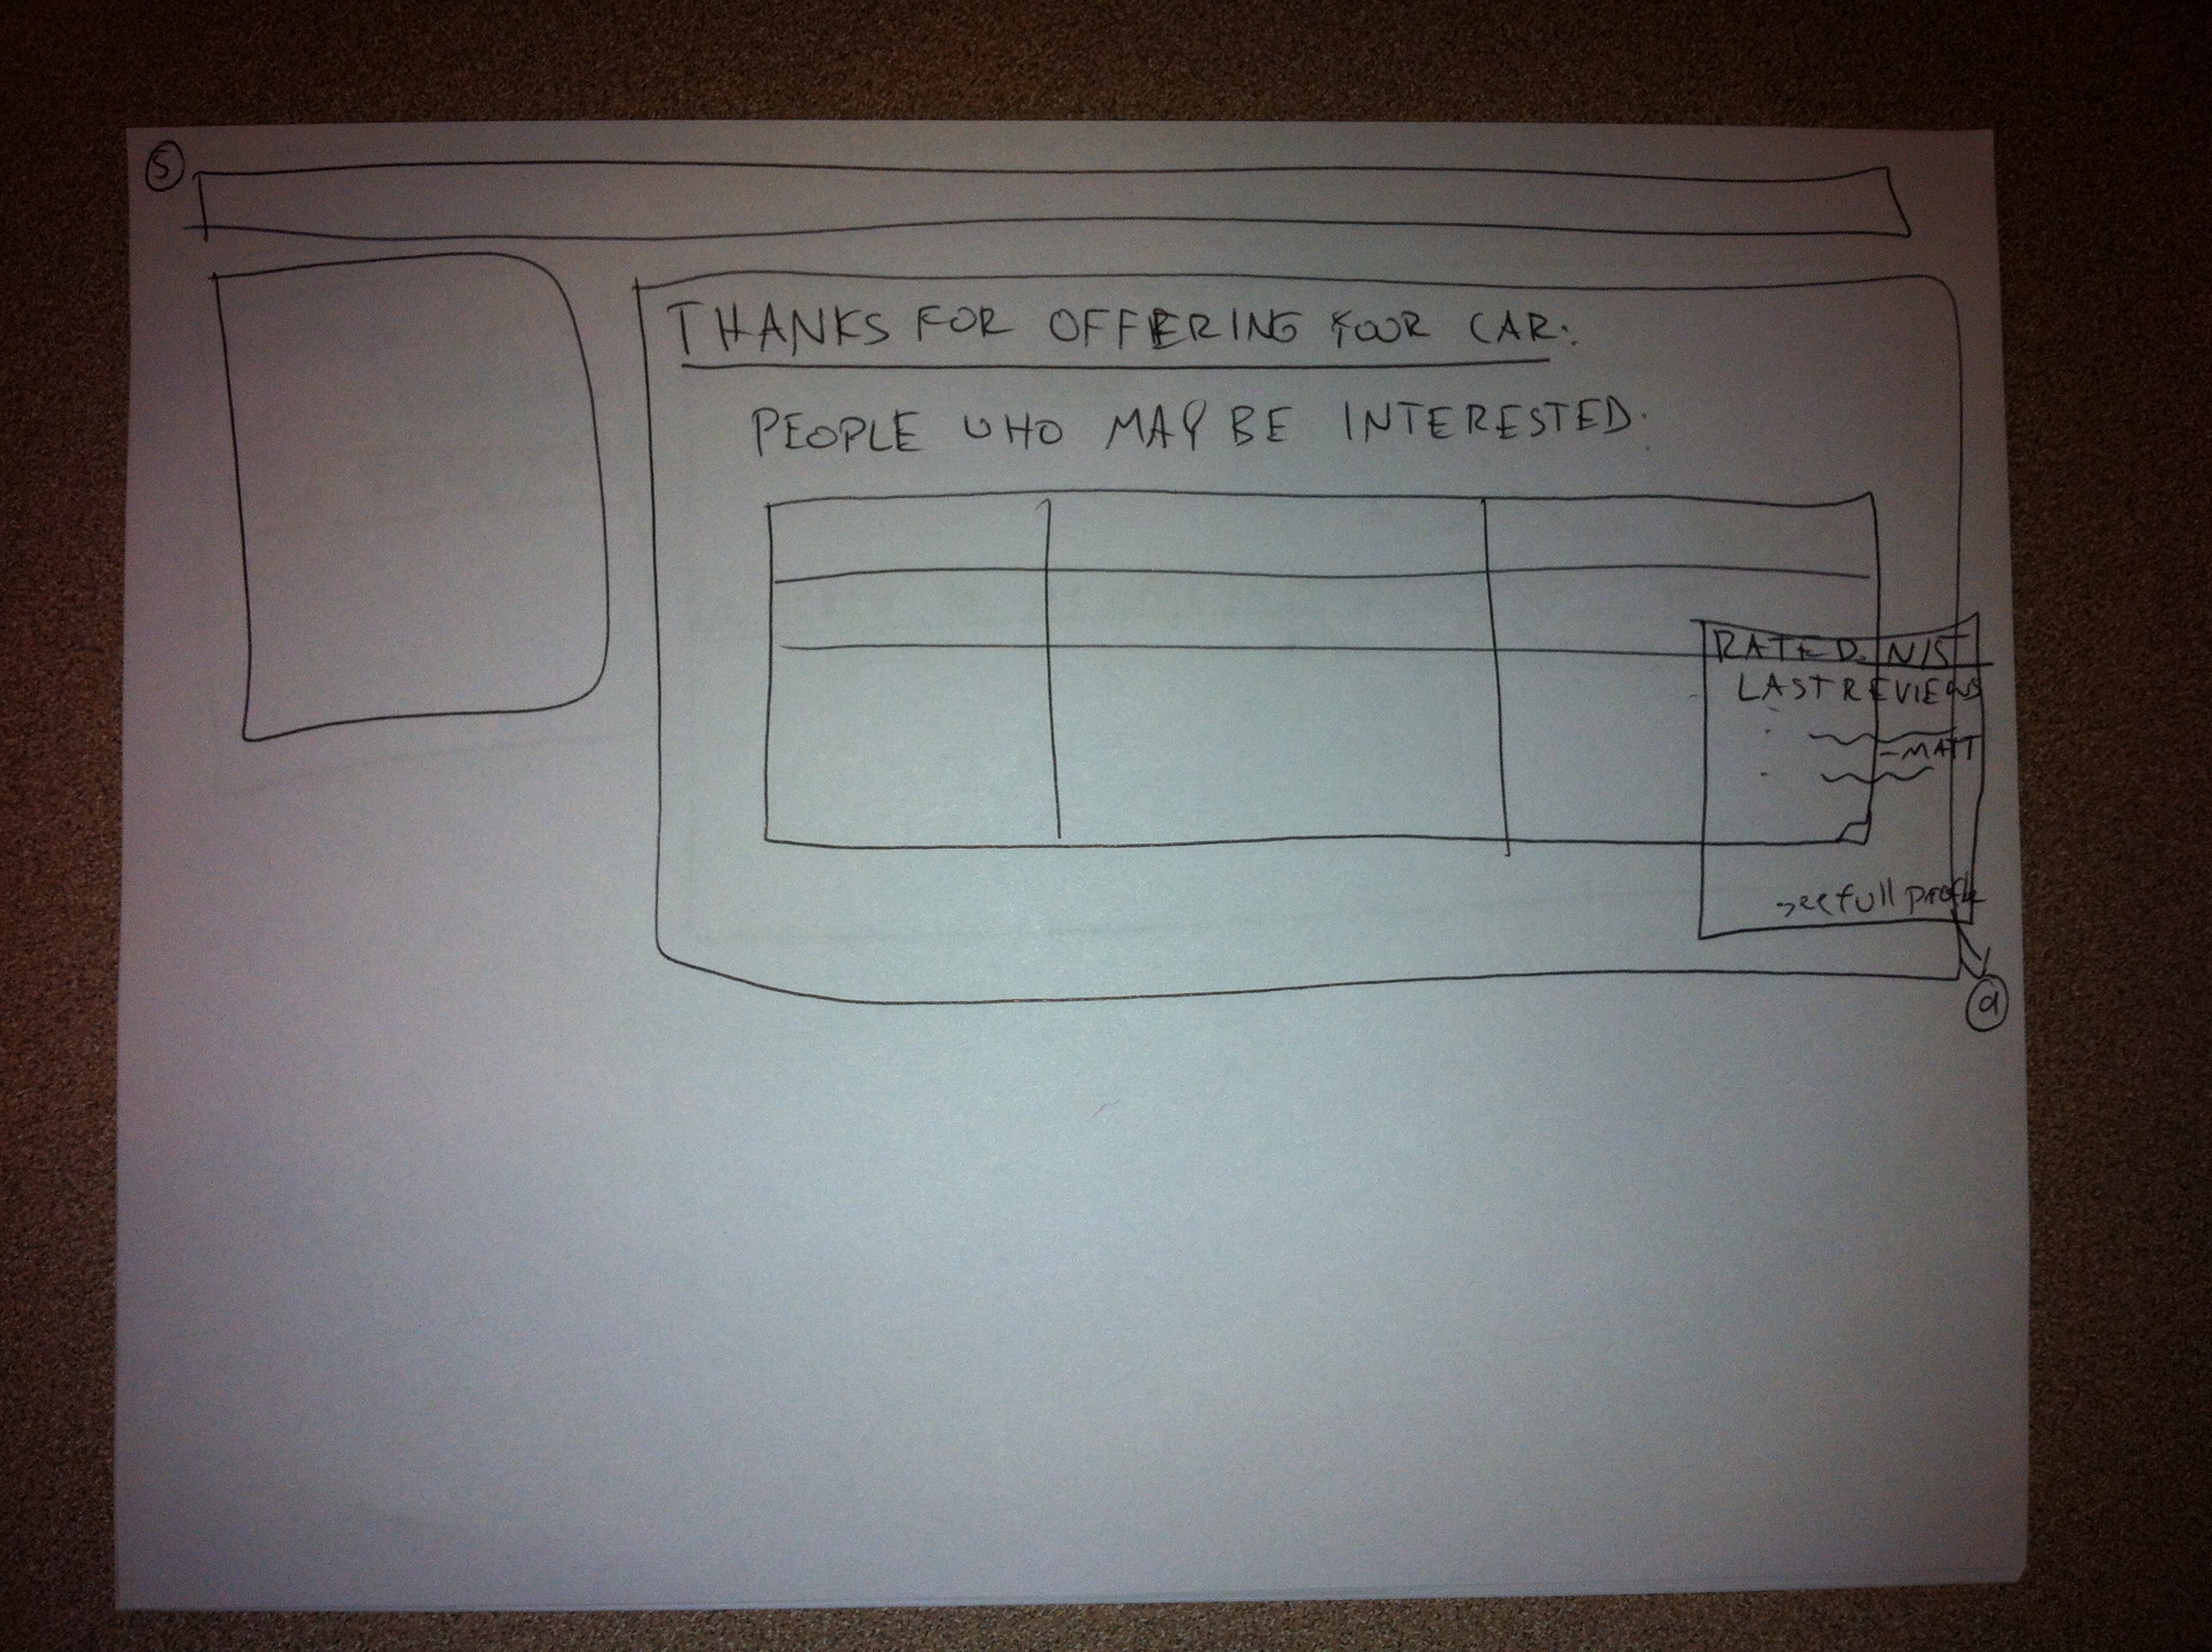 5
THANKS FOR OFFERING YOUR CAR.
PEOPLE WHO MAY BE INTERESTED.
RATED. N/5
LAST REVIEWS
-MATT
see full profile
a